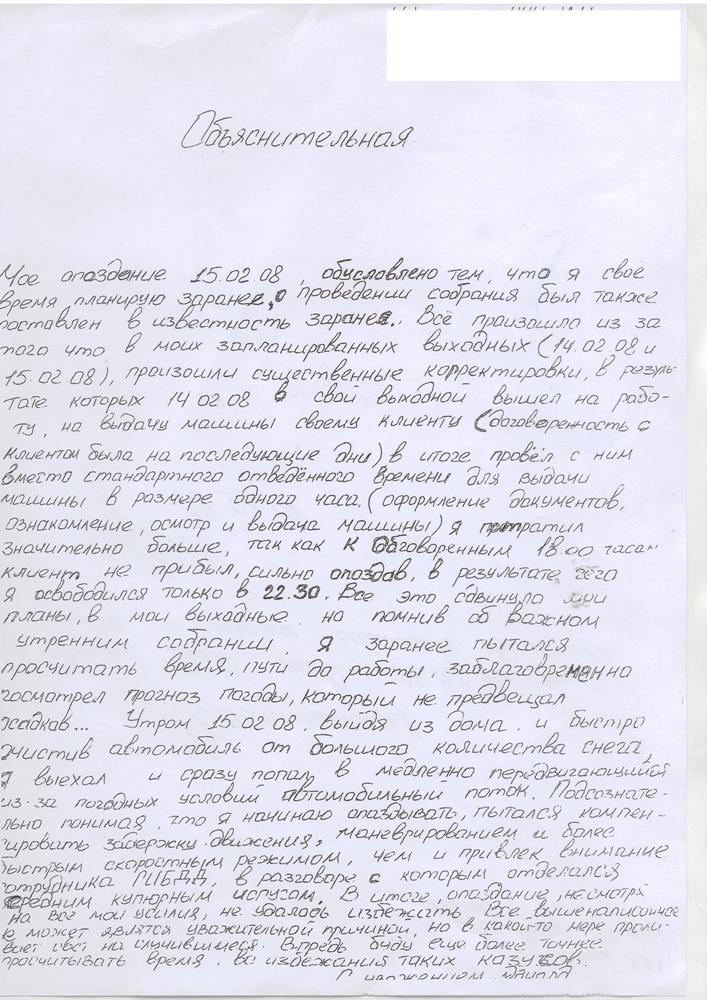 Объяснительная
Мое опоздание 15.02.08, обусловлено тем, что я своё
время, планирую заранее, о проведении собрания был также
поставлен в известность заранее. Всё произошло из за
того что в моих запланированных выходных (14.02.08 и
15.02.08), произошли существенные корректировки, в резуль-
тате которых 14.02.08 в свой выходной вышел на рабо-
ту, на выдачу машины своему клиенту (договоренность с
клиентом была на последующие дни) в итоге провёл с ним
вместо стандартного отведённого времени для выдачи
машины в размере одного часа, (оформление документов,
ознакомление, осмотр и выдача машины) я потратил
значительно больше, так как к обговоренным 18.00 часам
клиент не прибыл, сильно опоздав, в результате чего
я освободился только в 22.30. Все это сдвинуло мои
планы, в мои выходные. но помнив об важном
утренним собрании. Я заранее пытался
просчитать время, пути до работы, заблаговременно
посмотрел прогноз погоды, который не предвещал
осадков... Утром 15.02.08. выйдя из дома. и быстро
очистив автомобиль от большого количества снега,
я выехал и сразу попал в медленно передвигающийся
из-за погодных условий автомобильный поток. Подсознате-
льно понимая, что я начинаю опаздывать, пытался компен-
сировать задержку движения, маневрированием и более
быстрым скоростным режимом, чем и привлек внимание
сотрудника ГИБДД, в разговоре с которым отделался
средним купюрным испугом. В итоге, опоздание, несмотря
на все мои усилия, не удалось избежать. Все вышенаписанное
не может являтся уважительной причиной, но в какой то мере проли-
вает свет на случившиеся. Впредь буду еще более точнее
просчитывать время. во избежания таких казусов.
С уважением